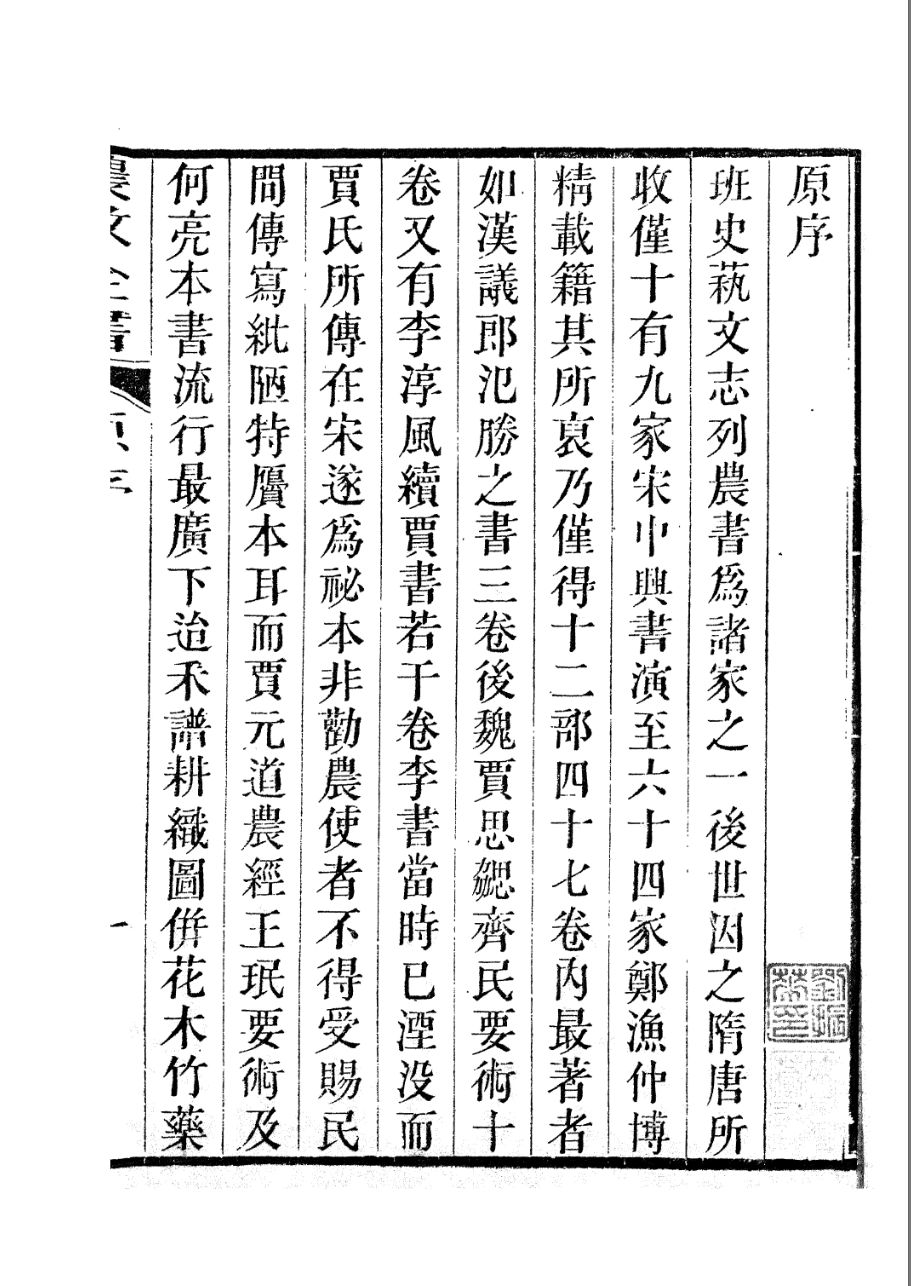 原序
班史蓺文志列農書爲諸家之一後世因之隋唐所
收僅十有九家宋中興書演至六十四家鄭漁仲博
精載籍其所裒乃僅得十二部四十七卷內最著者
如漢議郎氾勝之書三卷後魏賈思勰齊民要術十
卷又有李淳風續賈書若干卷李書當時已湮没而
賈氏所傳在宋遂爲祕本非勸農使者不得受賜民
間傳寫紕陋特贗本耳而賈元道農經王珉要術及
何亮本書流行最廣下迨禾譜耕織圖倂花木竹藥
農政全書
原序
一